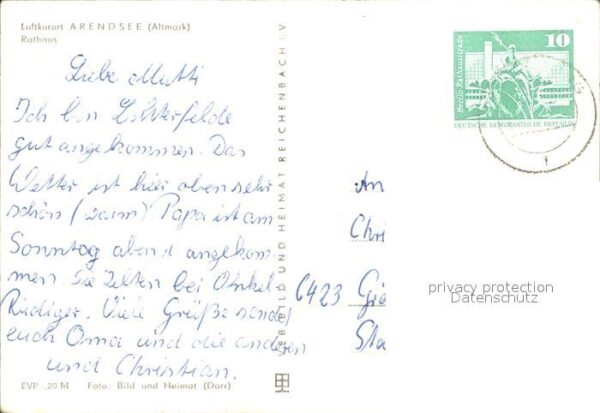 Luftkurort ARENDSEE (Altmark)
Rathaus
Liebe Mutti
Ich bin Lichterfelde
gut angekommen. Das
Wetter ist hier oben sehr
schön (warm) Papa ist am
Sonntag abend angekom-
men. Sie Zelten bei Onkel
Rüdiger. Viele Grüße sendet
euch Oma und die anderen
und Christian.
EVP -,20 M Foto: Bild und Heimat (Darr)
VEB BILD UND HEIMAT REICHENBACH I. V.
10
Berlin, Rathausstraße
DEUTSCHE DEMOKRATISCHE REPUBLIK
An
Chri
6423 Grä
Sta
privacy protection
Datenschutz